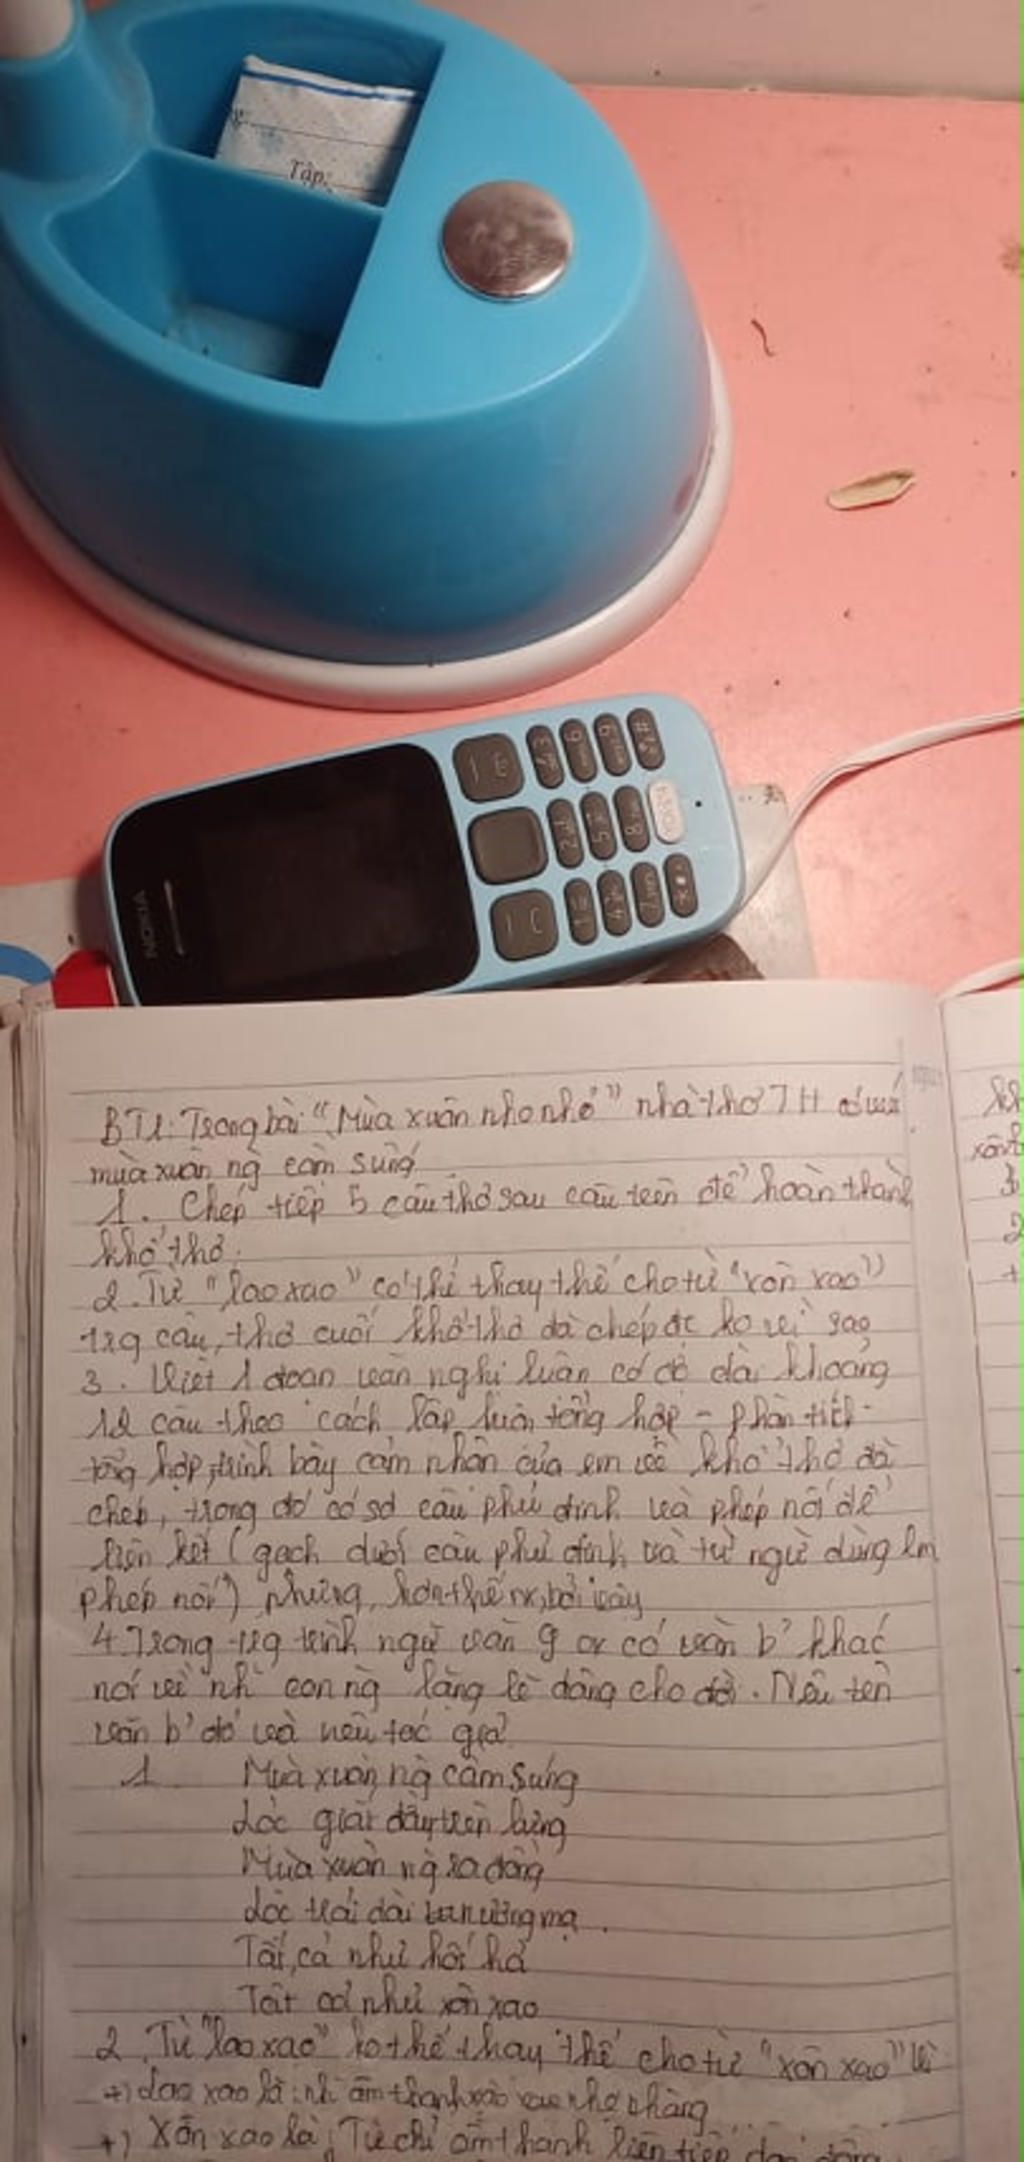 Tập:
NOKIA
BT1: Trong bài "Mùa xuân nho nhỏ" nhà thơ TH có viết
mùa xuân ng cầm súng
1. Chép tiếp 5 câu thơ sau câu trên để hoàn thành
khổ thơ.
2. Từ "lao xao" có thể thay thế cho từ "xôn xao"
trg câu thơ cuối khổ thơ đã chép đc ko vì sao
3. Viết 1 đoạn văn nghị luận có độ dài khoảng
12 câu theo cách lập luận tổng hợp - phân tích -
tổng hợp, trình bày cảm nhận của em về khổ thơ đã
chép, trong đó có sd câu phủ định và phép nối để
liên kết (gạch dưới câu phủ định và từ ngữ dùng lm
phép nối) nhưng, hơn thế nx, bởi vậy
4. Trong trg trình ngữ văn 9 cx có văn b' khác
nói về n~ con ng lặng lẽ dâng cho đời. Nêu tên
văn b' đó và nêu tác giả?
1 Mùa xuân ng cầm súng
Lộc giắt đầy trên lưng
Mùa xuân ng ra đồng
Lộc trải dài nương mạ.
Tất cả như hối hả
Tất cả như xôn xao
2. Từ "lao xao" ko thể thay thế cho từ "xôn xao" vì
+) Lao xao là: âm thanh nhẹ nhàng
+) Xôn xao là: Từ chỉ âm thanh liên tiếp